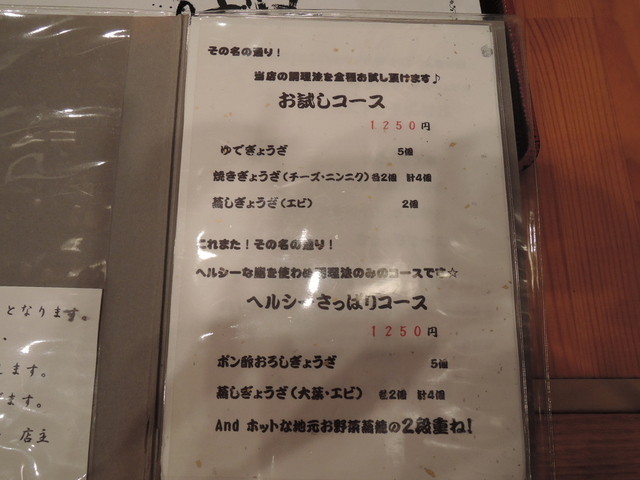 その名の通り！
当店の調理法を全種お試し頂けます♪
お試しコース
1250円
ゆでぎょうざ 5個
焼きぎょうざ（チーズ・ニンニク）各2個 計4個
蒸しぎょうざ（エビ） 2個
これまた！その名の通り！
ヘルシーな油を使わぬ調理法のみのコースです☆
ヘルシーさっぱりコース
1250円
ポン酢おろしぎょうざ 5個
蒸しぎょうざ（大葉・エビ） 各2個 計4個
And ホットな地元お野菜蒸籠の2段重ね！
となります。
ます。
ます。
店主